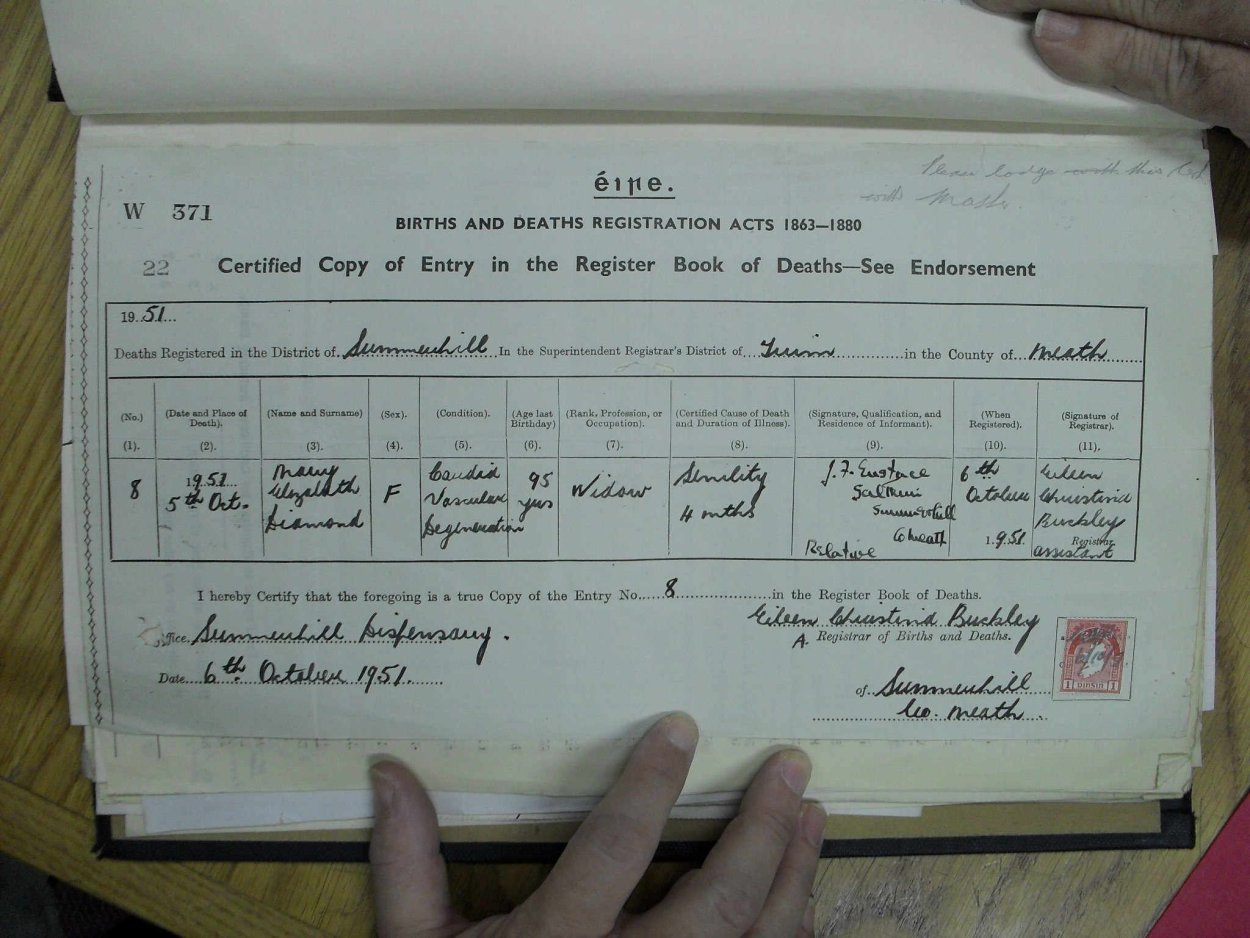 éire.
Please lodge with this
with
W 371
BIRTHS AND DEATHS REGISTRATION ACTS 1863—1880
22
Certified Copy of Entry in the Register Book of Deaths—See Endorsement
19 51
Deaths Registered in the District of Summerhill In the Superintendent Registrar's District of Trim in the County of Meath
(No.) (Date and Place of Death). (Name and Surname) (Sex). (Condition). (Age last Birthday) (Rank, Profession, or Occupation). (Certified Cause of Death and Duration of Illness). (Signature, Qualification, and Residence of Informant). (When Registered). (Signature of Registrar).
(1). (2). (3). (4). (5). (6). (7). (8). (9). (10). (11).
8
1951
5th Oct.
Mary
Elizabeth
Diamond
F
Cardio
Vascular
Degeneration
95
yrs
Widow
Senility
4 mths
J. F. Eustace
Summerhill
Co Meath
Relative
6th
October
1951
Eileen
Christina
Buckley
Registrar
assistant
I hereby Certify that the foregoing is a true Copy of the Entry No. 8 in the Register Book of Deaths.
Eileen Christina Buckley
Office, Summerhill Dispensary.
A. Registrar of Births and Deaths.
Date 6th October 1951.
of Summerhill
Co. Meath.
1 PINSIN 1